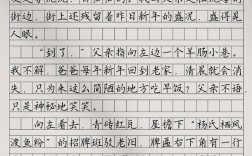 街边，街上还残留着昨日新年的盛况，盛况晃
人眼。
“到了，”父亲指向左边一个羊肠小巷。
我不解，爸爸每年新年回到老家，清晨就会消
失，只为来这人简陋的地方吃早饭？父亲不语，
只是神秘地笑笑。
向左看去，青砖红瓦，屋檐下“杨氏栖风
渡鱼粉”的招牌斑驳老旧，牌匾右下角有一行